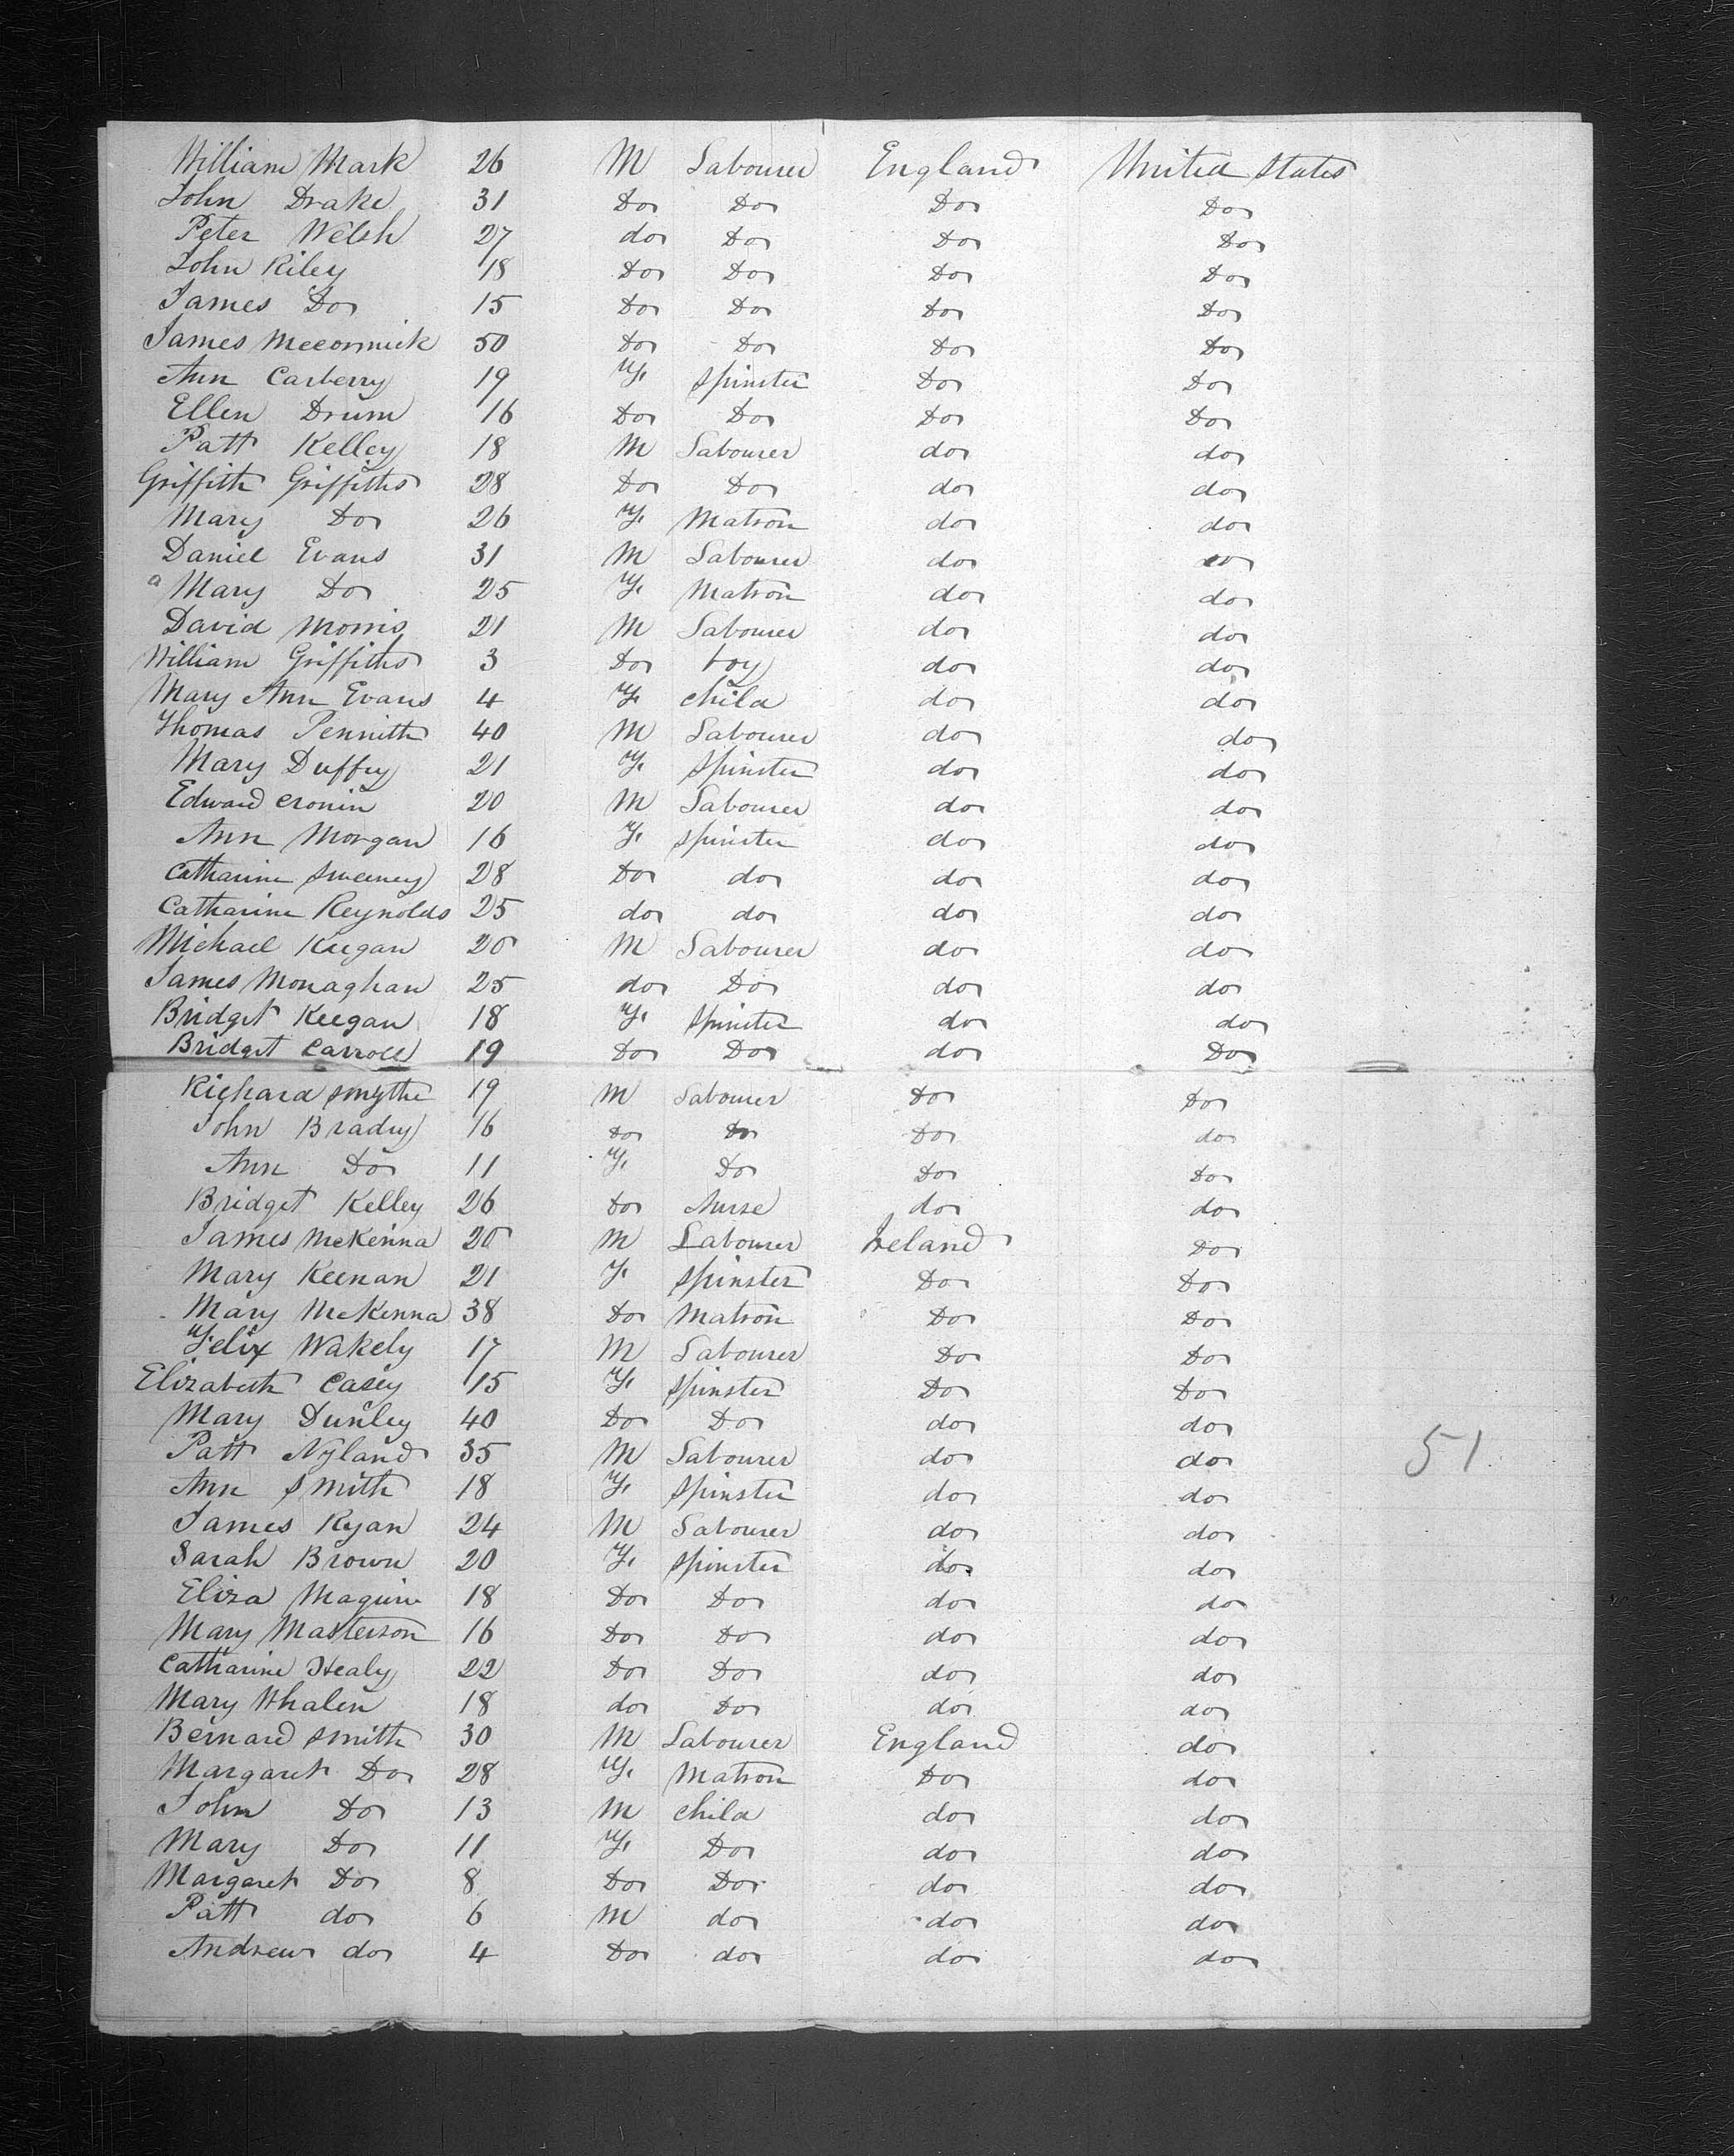 William Mark 26 M Labourer England United States
John Drake 31 Do Do Do Do
Peter Welsh 27 do Do Do Do
John Riley 18 Do Do Do Do
James Do 15 Do Do Do Do
James Mccormick 50 Do Do Do Do
Ann Carberry 19 F. Spinster Do Do
Ellen Drum 16 Do Do Do Do
Patt Kelley 18 M Labourer do do
Griffith Griffiths 28 Do Do do do
Mary Do 26 F. Matron do do
Daniel Evans 31 M Labourer do do
a Mary Do 25 F. Matron do do
David Morris 21 M Labourer do do
William Griffiths 3 Do boy do do
Mary Ann Evans 4 F. child do do
Thomas Pennith 40 M Labourer do do
Mary Duffey 21 F. Spinster do do
Edward Cronin 20 M Labourer do do
Ann Morgan 16 F. Spinster do do
Catharine Sweeney 28 Do do do do
Catharine Reynolds 25 do do do do
Michael Keegan 20 M Labourer do do
James Monaghan 25 do Do do do
Bridget Keegan 18 F. Spinster do do
Bridget Carroll 19 Do Do do Do
Richard Smythe 19 M Labourer Do Do
John Brady 16 Do Do Do do
Ann Do 11 F. Do Do Do
Bridget Kelley 26 Do Nurse do do
James McKenna 20 M Labourer Ireland Do
Mary Keenan 21 F. Spinster Do Do
Mary McKenna 38 Do Matron Do Do
Felix Wakely 17 M Labourer Do Do
Elizabeth Casey 15 F. Spinster Do Do
Mary Dunley 40 Do Do do do
Patt Nyland 35 M Labourer do do 51
Ann Smith 18 F. Spinster do do
James Ryan 24 M Labourer do do
Sarah Brown 20 F. Spinster do do
Eliza Maguire 18 Do Do do do
Mary Masterson 16 Do Do do do
Catharine Healy 22 Do Do do do
Mary Whalen 18 do Do do do
Bernard Smith 30 M Labourer England do
Margaret Do 28 F. Matron Do do
John Do 13 M child do do
Mary Do 11 F. Do do do
Margaret Do 8 Do Do do do
Patt do 6 M do do do
Andrew do 4 Do do do do